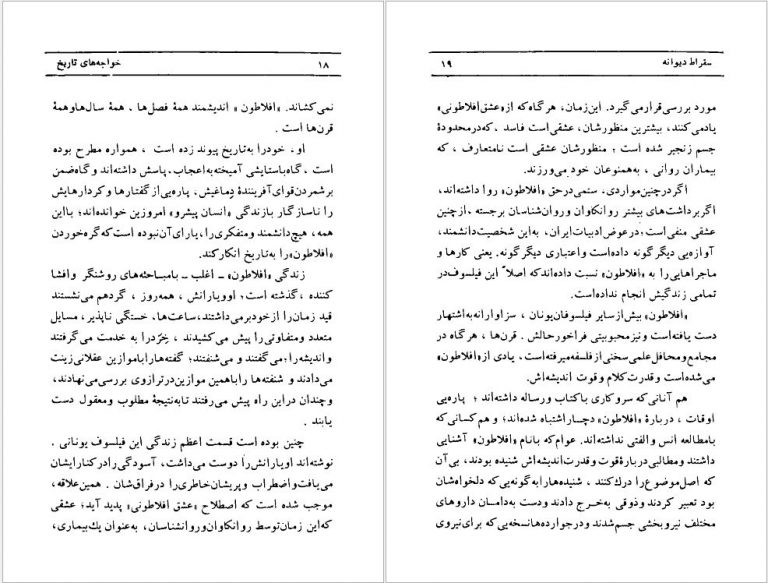 ۱۸ خواجه‌های تاریخ
نمی‌کشاند. «افلاطون» اندیشمند همهٔ فصل‌ها ، همهٔ سال‌ها و همهٔ
قرن‌ها است .
او، خود را به تاریخ پیوند زده است ، همواره مطرح بوده
است ، گاه با ستایشی آمیخته به اعجاب، پاسش داشته‌اند و گاه ضمن
برشمردن قوای آفرینندهٔ دماغیش، پاره‌یی از گفتارها و کردارهایش
را ناسازگار با زندگی «انسان پیشرو» امروزین خوانده‌اند؛ با این
همه، هیچ دانشمند و متفکری را، یارای آن نبوده است که گره خوردن
«افلاطون» را به تاریخ انکار کند.
زندگی «افلاطون» ـ اغلب ـ با مباحثه‌های روشنگر و افشا
کننده ، گذشته است؛ او و یارانش ، همه روز ، گرد هم می‌نشستند
قید زمان را از خود برمی‌داشتند، ساعت‌ها، خستگی ناپذیر، مسایل
متعدد و متفاوتی را پیش می‌کشیدند ، خِرَد را به خدمت می‌گرفتند
و اندیشه را؛ می‌گفتند و می‌شنفتند؛ گفته‌ها را با موازین عقلانی زینت
می‌دادند و شنفته‌ها را با همین موازین در ترازوی بررسی می‌نهادند،
و چندان در این راه پیش می‌رفتند تا به نتیجهٔ مطلوب و معقول دست
یابند .
چنین بوده است قسمت اعظم زندگی این فیلسوف یونانی .
نوشته‌اند او یارانش را دوست می‌داشت، آسودگی را در کنار ایشان
می‌یافت و اضطراب و پریشان خاطری را در فراق‌شان . همین علاقه،
موجب شده است که اصطلاح «عشق افلاطونی» پدید آید؛ عشقی
که این زمان توسط روانکاوان و روانشناسان، به عنوان یك بیماری،
سقراط دیوانه ۱۹
مورد بررسی قرار می‌گیرد. این زمان، هرگاه که از «عشق افلاطونی»
یاد می‌کنند، بیشترین منظورشان، عشقی است فاسد ، که در محدودهٔ
جسم زنجیر شده است ؛ منظورشان عشقی است نامتعارف ، که
بیماران روانی ، به همنوعان خود می‌ورزند.
اگر در چنین مواردی، ستمی در حق «افلاطون» روا داشته‌اند،
اگر برداشت‌های بیشتر روانکاوان و روان‌شناسان برجسته ، از چنین
عشقی منفی است؛ در عوض ادبیات ایران، به این شخصیت دانشمند،
آوازه‌یی دیگرگونه داده است و اعتباری دیگرگونه. یعنی کارها و
ماجراهایی را به «افلاطون» نسبت داده‌اند که اصلاً این فیلسوف در
تمامی زندگیش انجام نداده است.
«افلاطون» بیش از سایر فیلسوفان یونان ، سزاوارانه به اشتهار
دست یافته است و نیز محبوبیتی فراخور حالش . قرن‌ها ، هرگاه در
مجامع و محافل علمی سخنی از فلسفه میرفته است، یادی از «افلاطون»
می‌شده است و قدرت کلام و قوت اندیشه‌اش.
هم آنانی که سر و کاری با کتاب و رساله داشته‌اند ؛ پاره‌یی
اوقات ، دربارهٔ «افلاطون» دچار اشتباه شده‌اند؛ و هم کسانی که
با مطالعه انس و الفتی نداشته‌اند. عوام که با نام «افلاطون» آشنایی
داشتند و مطالبی دربارهٔ قوت و قدرت اندیشه‌اش شنیده بودند، بی‌آن
که اصل موضوع را درك کنند ، شنیده‌ها را به گونه‌یی که دلخواه‌شان
بود تعبیر کردند و ذوقی به خرج دادند و دست به دامان داروهای
مختلف نیروبخشی جسم شدند و در جوار ده‌ها نسخه‌یی که برای نیروی